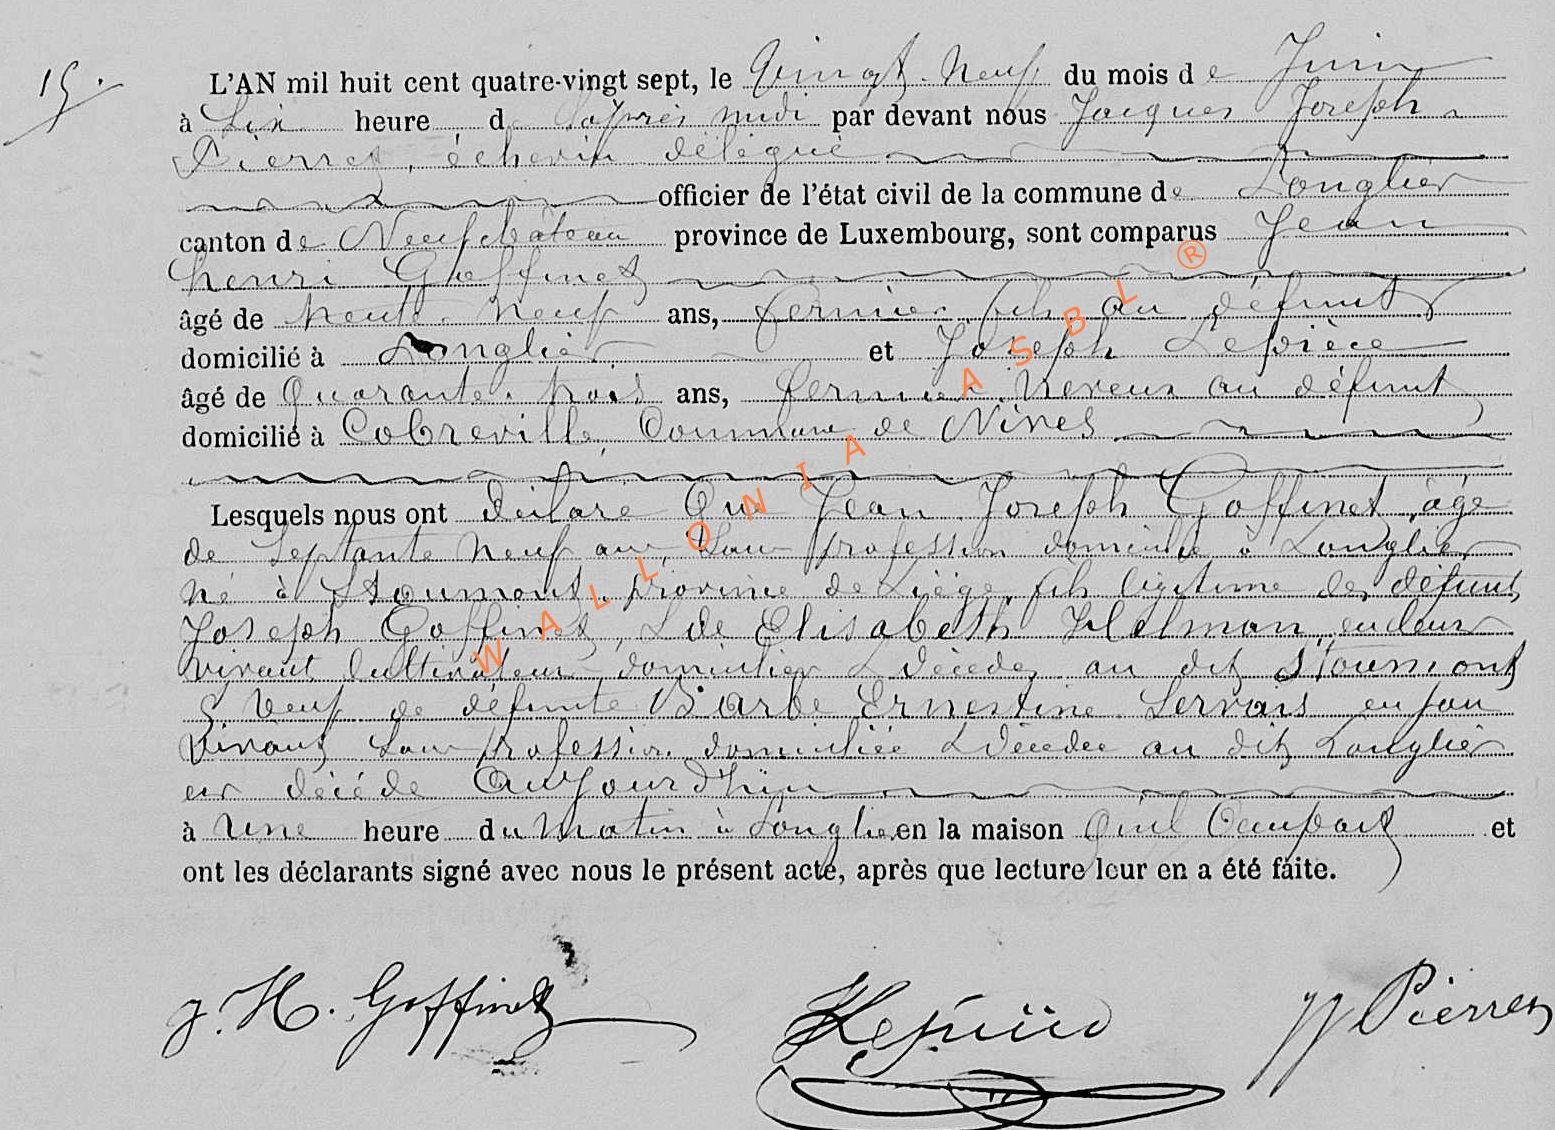 15.
L'AN mil huit cent quatre-vingt sept, le Vingt-Neuf du mois de Juin
à Six heure , d L'après midi par devant nous Jacques Joseph
Pierret, échevin délégué
officier de l'état civil de la commune de Longlier
canton de Neufchâteau province de Luxembourg, sont comparus Jean
henri Goffinet
âgé de trente-Neuf ans, fermier, fils au défunt
domicilié à Longlier et Joseph Lepièce
âgé de Quarante-trois ans, fermier, Neveux au défunt
domicilié à Cobreville Commune de Nives
Lesquels nous ont déclaré Que Jean Joseph Goffinet, âgé
de Septante Neuf ans Sans profession domicilié à Longlier
né à Stoumont, province de Liège, fils légitime des défunts
Joseph Goffinet, & de Elisabeth Helman, en leur
vivant Cultivateur, domicilier & décédez au dit Stoumont
& Veuf de défunte Barbe Ernestine Servais en son
Vivant Sans profession domiciliée & décédée au dit Longlier
est décédé Aujourd'hui
à Une heure du Matin à Longlier en la maison Qu'il Occupait et
ont les déclarants signé avec nous le présent acte, après que lecture leur en a été faite.
J. H. Goffinet
JJ Pierret
WALLONIA ASBL ®